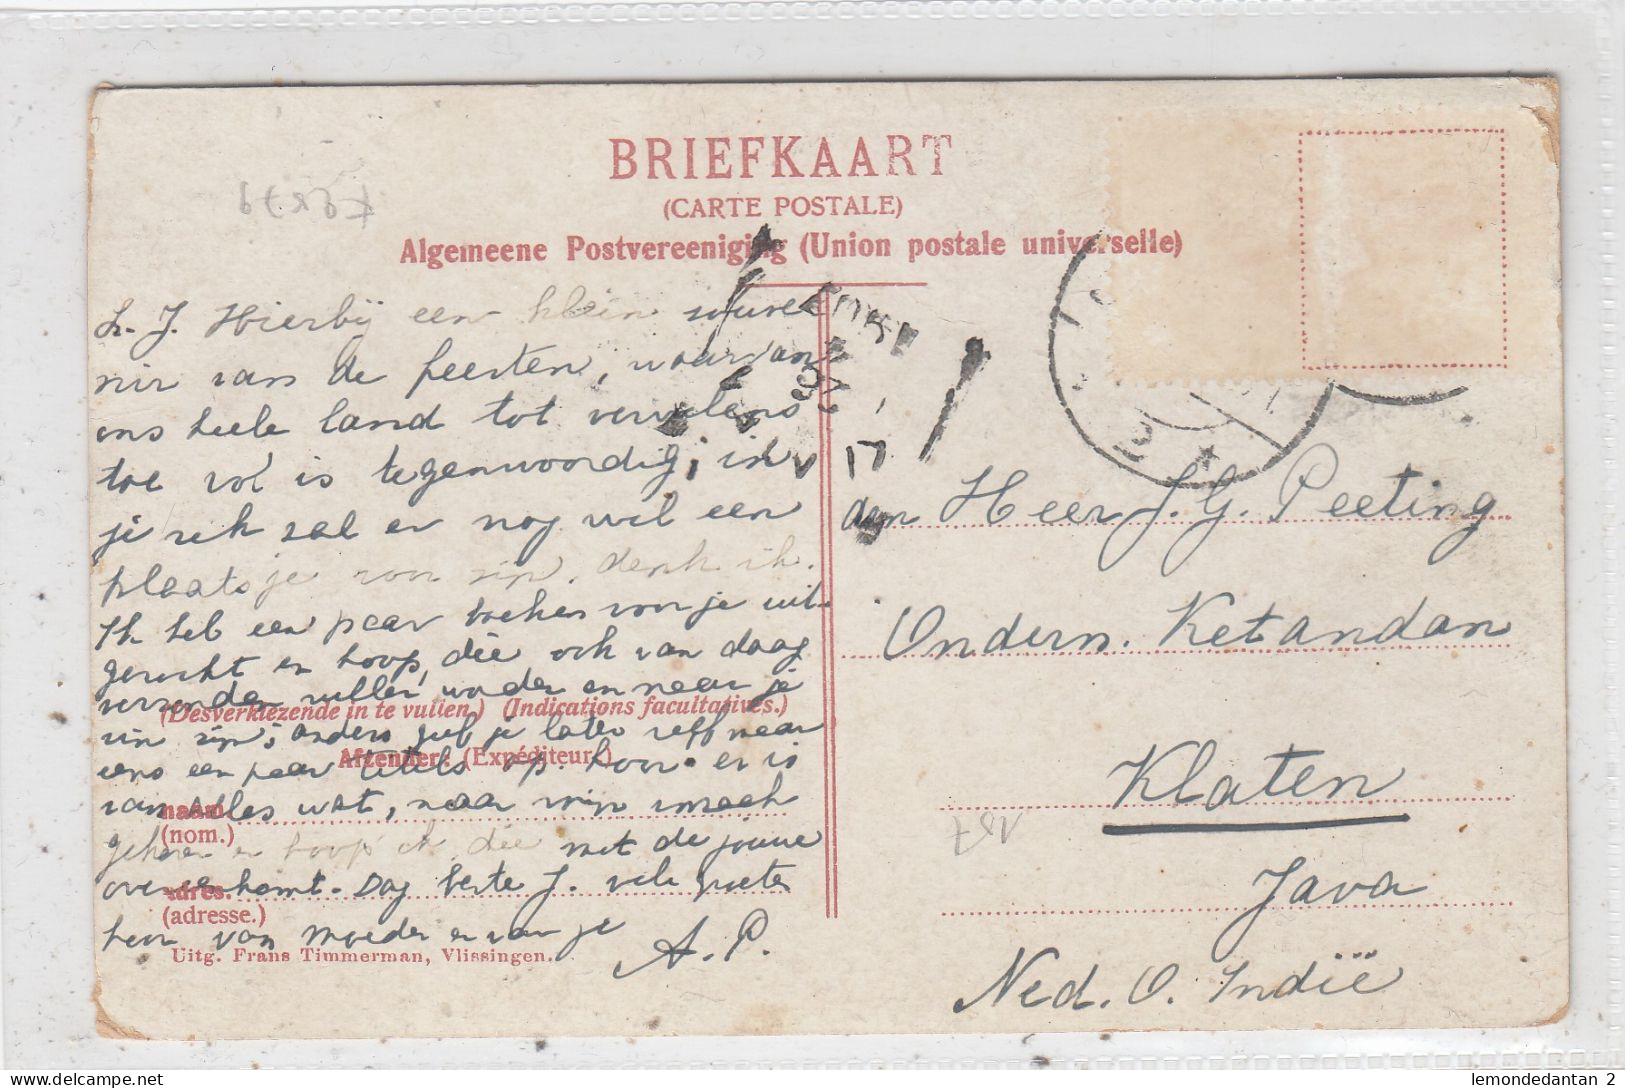 BRIEFKAART
(CARTE POSTALE)
Algemeene Postvereeniging (Union postale universelle)
L. J. Hierbij een klein souve
nir van de feesten, waarvan
ons heele land tot vervelens
toe vol is tegenwoordig, in
je rek zal er nog wel een
plaatsje voor zijn, denk ik.
Ik heb een paar boeken voor je uit-
gezocht en hoop, die ook van daag
verzonden zullen worden en naar je
zin zijn; anders geef je later zelf maar
eens een paar titels op. hoor. er is
van alles wat, naar mijn smaak
gekozen en hoop ik die met de jouwe
overeenkomt. Dag beste J. vele groeten
hoor van Moeder en van je
A. P.
(Desverkiezende in te vullen.) (Indications facultatives.)
Afzender: (Expéditeur:)
naam
(nom.)
adres.
(adresse.)
Uitg. Frans Timmerman, Vlissingen.
den Heer J. G. Peeting
Ondern. Ketandan
Klaten
Java
Ned. O. Indië
17
157
lemondedantan 2